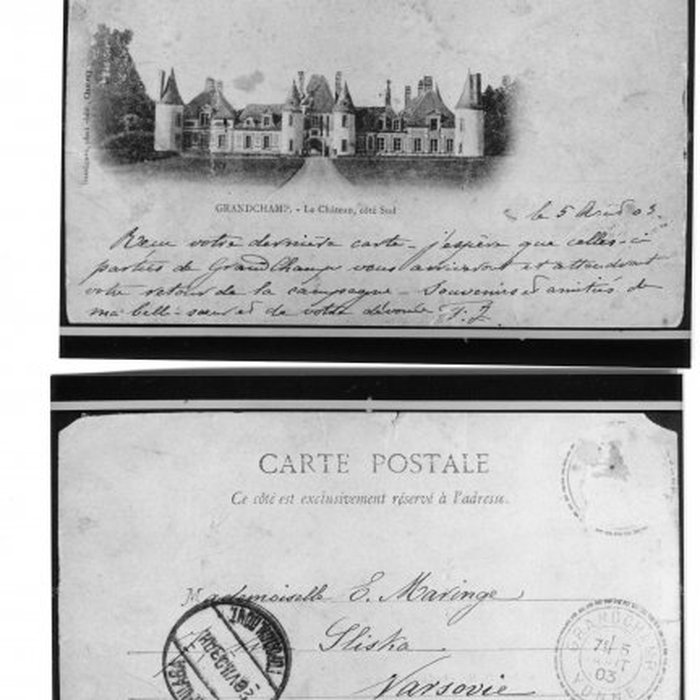 GRANDCHAMP. - Le Château, côté Sud
le 5 Août 03.
Reçu votre dernière carte - j'espère que celles-ci
parties de GrandChamp vous arriveront et attendront
votre retour de la campagne - Souvenirs et amitiés de
ma belle-sœur et de votre dévoué F. J.
CARTE POSTALE
Ce côté est exclusivement réservé à l'adresse.
Mademoiselle E. Maringe
Sliska
Varsovie
GRANDCHAMP
7 5
AOUT
03